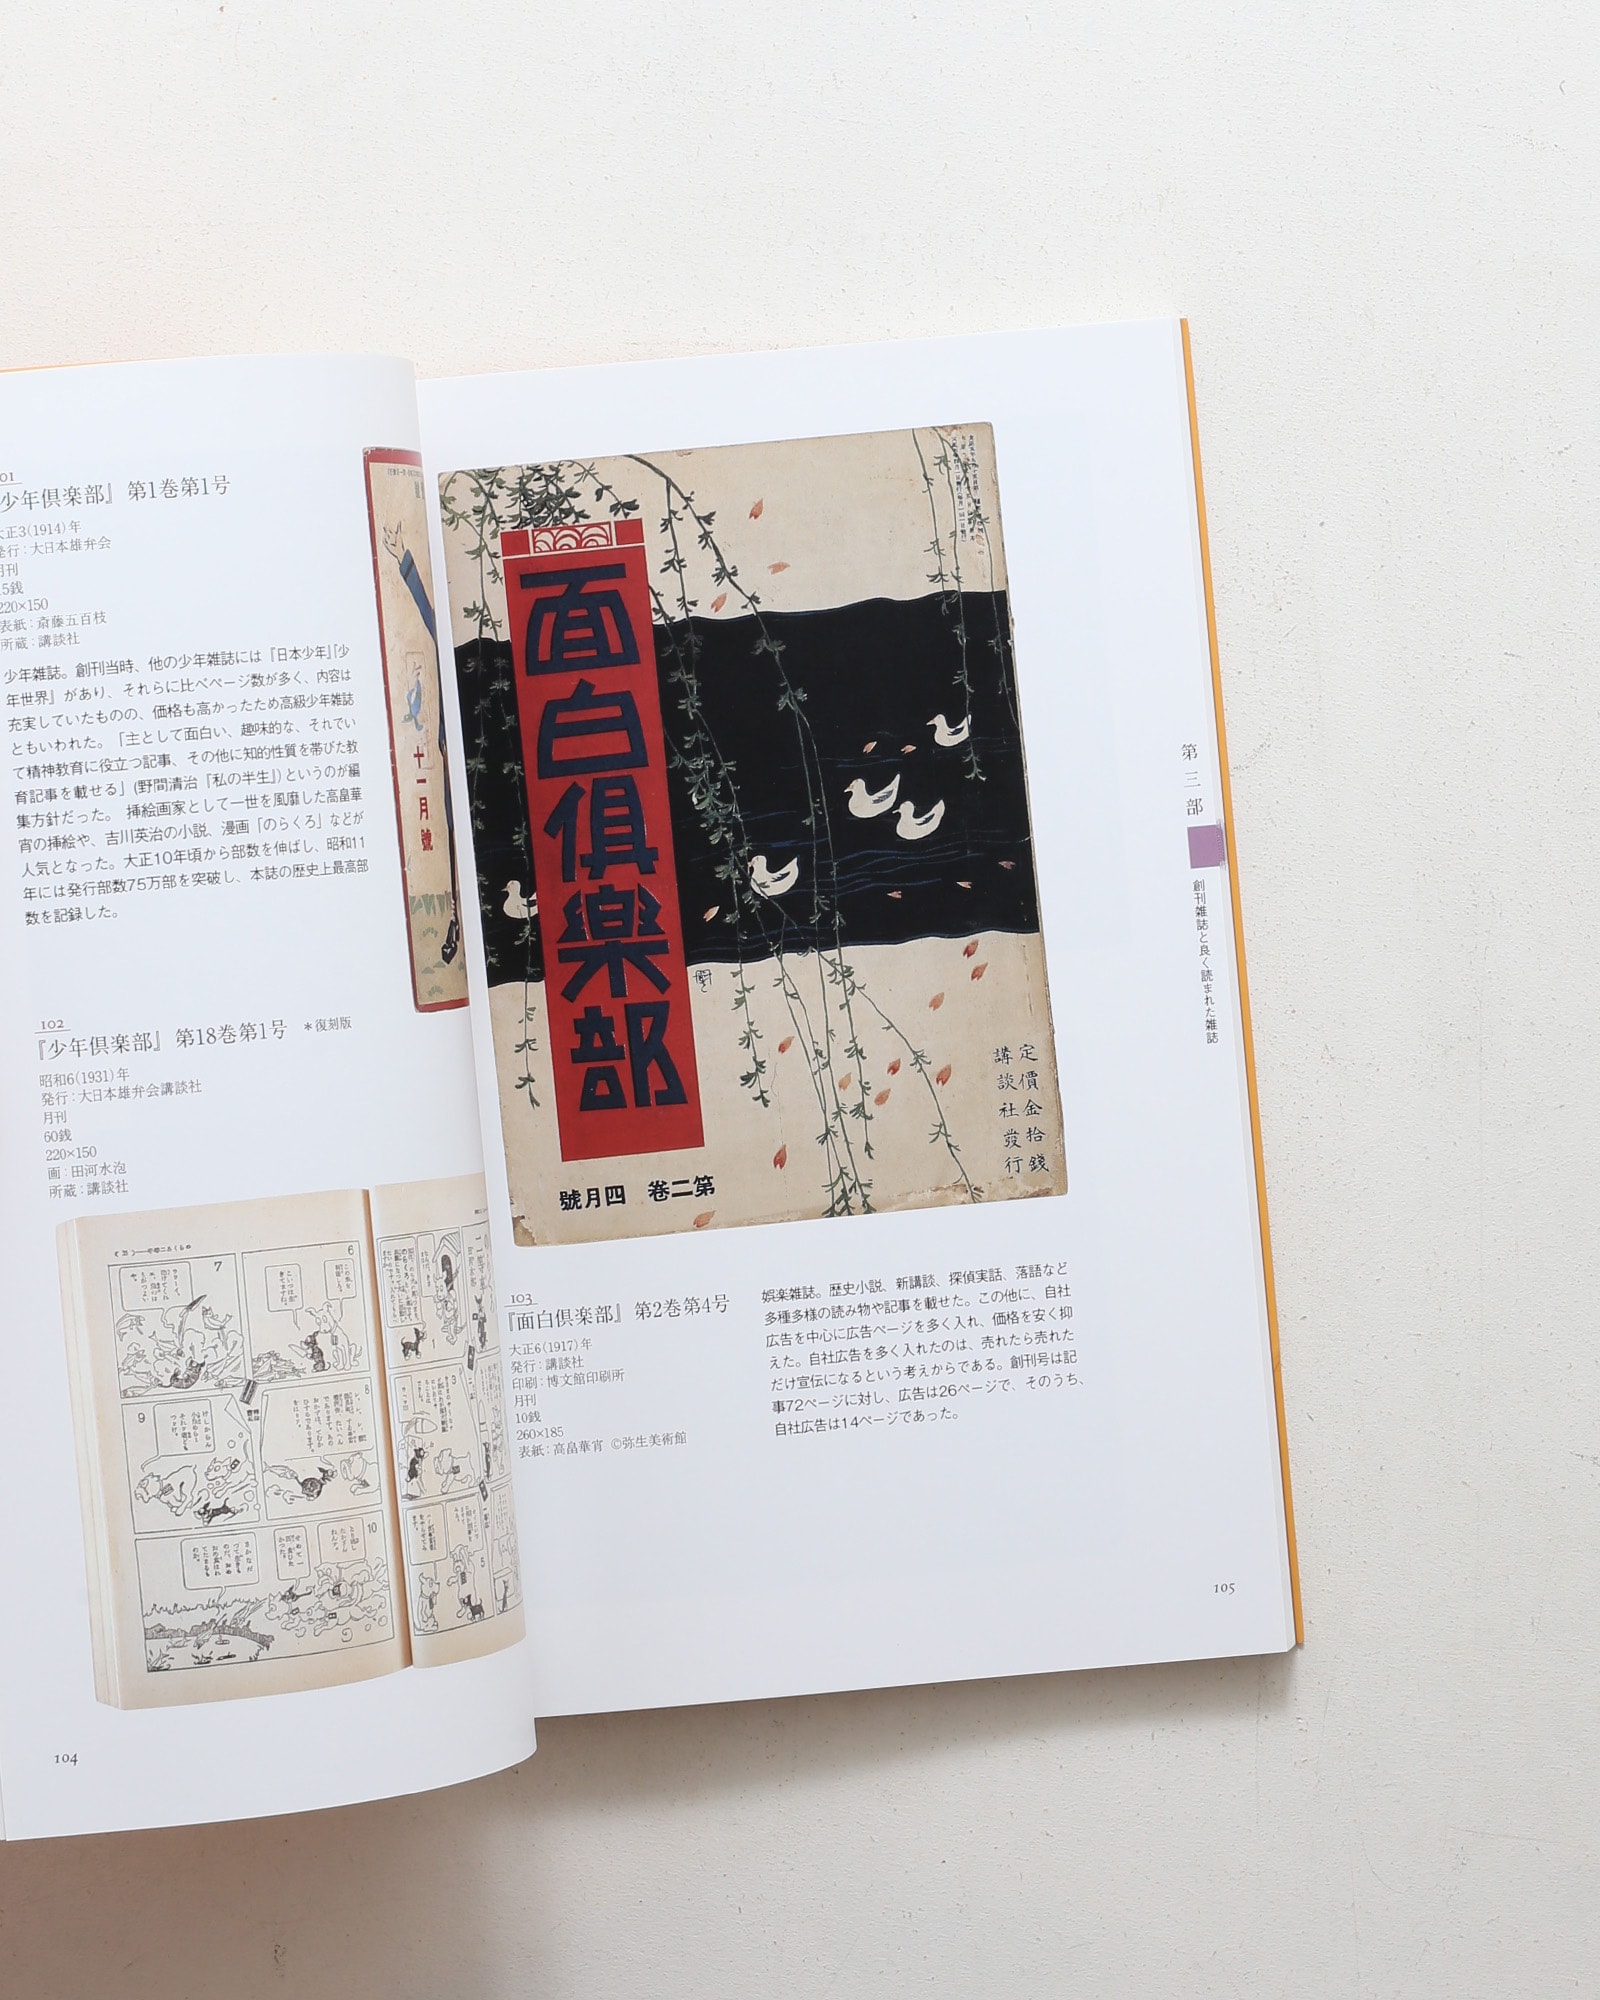 少年倶楽部』 第1巻第1号
大正3(1914)年
発行：大日本雄弁会
月刊
220×150
表紙：斎藤五百枝
所蔵：講談社
少年雑誌。創刊当時、他の少年雑誌には『日本少年』『少
年世界』があり、それらに比べページ数が多く、内容は
充実していたものの、価格も高かったため高級少年雑誌
ともいわれた。「主として面白い、趣味的な、それでい
て精神教育に役立つ記事、その他に知的性質を帯びた教
育記事を載せる」(野間清治『私の半生』)というのが編
集方針だった。 挿絵画家として一世を風靡した高畠華
宵の挿絵や、吉川英治の小説、漫画「のらくろ」などが
人気となった。大正10年頃から部数を伸ばし、昭和11
年には発行部数75万部を突破し、本誌の歴史上最高部
数を記録した。
十一月號
102
『少年倶楽部』 第18巻第1号 ＊復刻版
昭和6(1931)年
発行：大日本雄弁会講談社
月刊
60銭
220×150
画：田河水泡
所蔵：講談社
6
7
8
9
10
1
3
5
104
面白倶樂部
定價金拾錢
講談社發行
號月四 卷二第
103
『面白倶楽部』 第2巻第4号
大正6(1917)年
発行：講談社
印刷：博文館印刷所
月刊
10銭
260×185
表紙：高畠華宵 ©弥生美術館
娯楽雑誌。歴史小説、新講談、探偵実話、落語など
多種多様の読み物や記事を載せた。この他に、自社
広告を中心に広告ページを多く入れ、価格を安く抑
えた。自社広告を多く入れたのは、売れたら売れた
だけ宣伝になるという考えからである。創刊号は記
事72ページに対し、広告は26ページで、そのうち、
自社広告は14ページであった。
第三部
創刊雑誌と良く読まれた雑誌
105